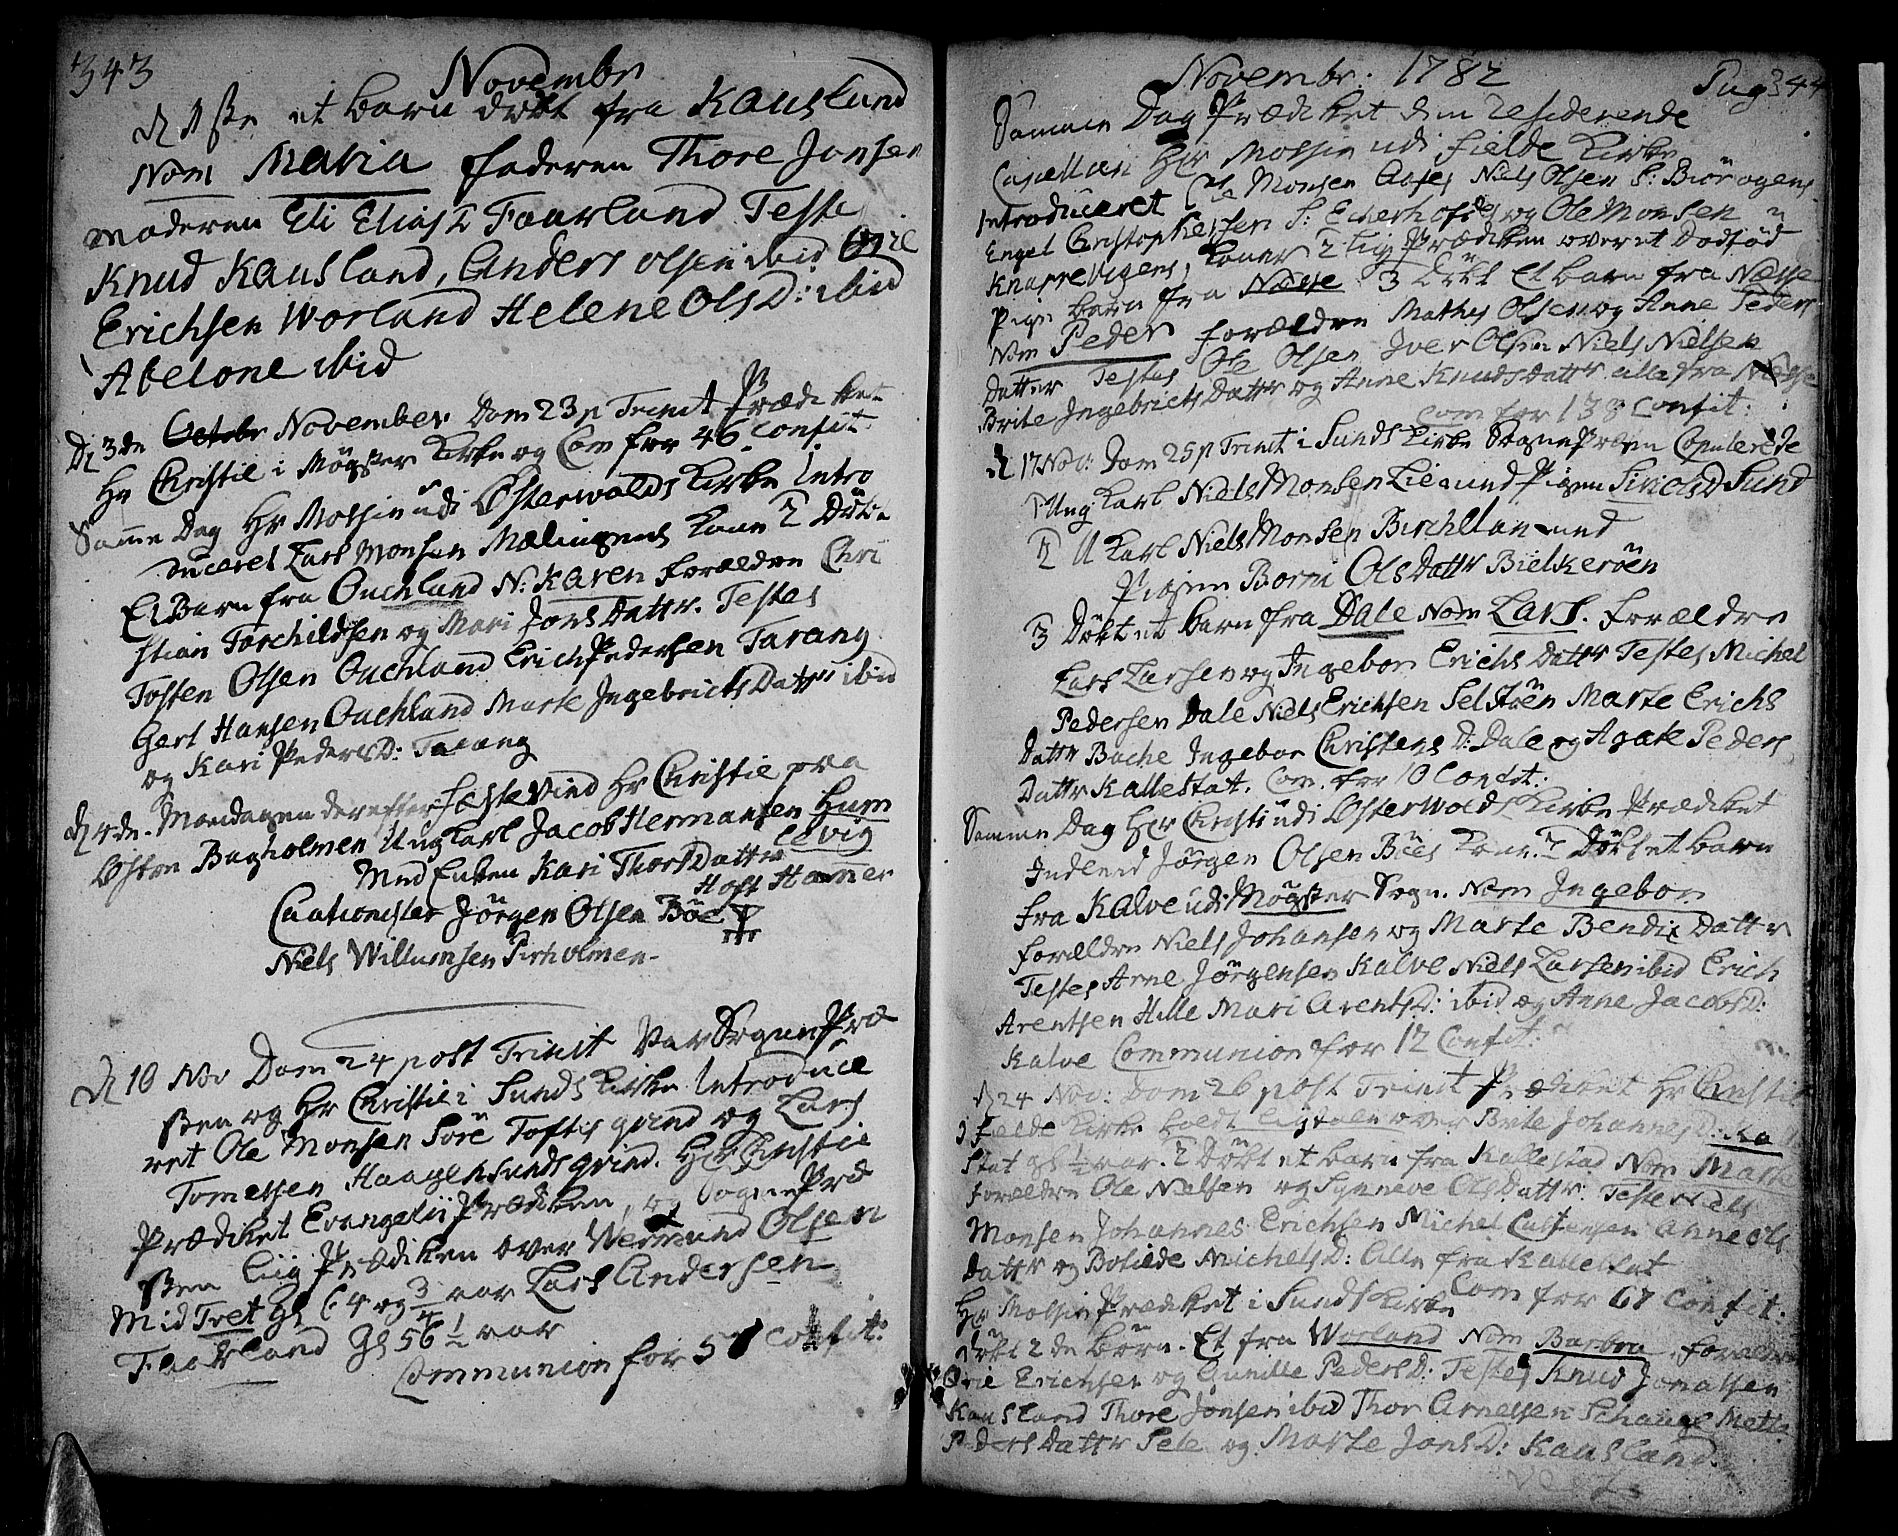 343
Novembr
et barn døbt fra Kausland
Nom Maria faderen Thore Jonsen
moderen Eli Elias D Faurland Teste
Knud Kausland, Anders Olsen ibid
Erichsen Worland Helene Ols D: ibid
Abelone ibid
D 3de Octobr November Dom 23 p Trinit Prædiket
Hr Christie i Møgster Kirke og Com for 46 Confit
Samme Dag Hr Mossin udi Østerwolds Kirke Intro
duceret Lars Monsen Mælingens Kone 2 Døbt
Et Barn fra Ouchland N: Karen forældre Chri
stian Torchildsen og Mari Jons Dattr. Testes
Tosten Olsen Ouchland Erich Pedersen Tarang
Gert Hansen Ouchland Marte Ingebricts Dattr ibid
og Kari Peders D: Tarang
D 4de. Mandagen derefter Hr Christie paa
Østre Bagholmen Ung Karl Jacob Hermansen Hum
levig
Med Enken Kari Thors Dattr
Hoft Hammer
Cautionister Jørgen Olsen Böe
Niels Willumsen Pirholmen
D 10 Nov Dom 24 post Trinit Var Sogne Præ
sten og Hr Christie i Sunds Kirke Introduce
ret Ole Monsen Söre Toftes qvind og Lars
Tomesen Haagensunds qvind. Hr Christie
Prædiket Evangelii Prædiken, og Sogne Præ
sten Liig Prædiken over Wermund Olsen
Mid Tret gl 64 og 3/4 aar Lars Andersen
gl 56 1/2 aar
Communion for 57 Confit:
Novembr: 1782
Pag 344
Samme Dag Prædiket den residerende
Capellan Hr Mossin udi Fielde Kirke
Introduceret Ole Monsen Niels Olsen S: Biörogens
Engel Christophersen S: Eckerhofdes og Ole Monsen
Knarrevigens, Koner 2 Lig Prædiken over et Dødfød
Pige barn fra Næsse 3 Døbt Et barn fra Næsse
Nom Peder forældre Mathis Olsen og Anne Peders
Datter Testes Ole Olsen Iver Olsen Niels Nielsen
Brite Ingebricts Dattr og Anne Knuds Dattr alle fra Næsse
Com for 138 Confit:
D 17 Nov: Dom 25 p Trinit i Sunds Kirke Sogne Præsten Copulerede
1 Ung Karl Niels Monsen Lie med Pigen Siri Ols D Sund
2 U Karl Niels Monsen Birchelan med
Pigen Borni Ols Dattr Bielkeröen
3 Døbt et barn fra Dale Nom Lars. forældre
Lars Larsen og Ingebor Erichs Dattr Testes Michel
Pedersen Dale Niels Erichsen Selströn Marte Erichs
Dattr Bache Ingebor Christens D: Dale og Agate Peders
Dattr Kallestat. Com. for 10 Confit:
Samme Dag Hr Christie udi Østerwolds Kirke Prædiket
Indleed Jørgen Olsen Böes Kone. 2 Døbt et barn
fra Kalve udi Møgster Sogn. Nom Ingebor
forældre Niels Johansen og Marte Bendix Dattr
Testes Arne Jørgensen Kalve Niels Larsen ibid Erich
Arentsen Hille Mari Arents D: ibid og Anne Jacobs D:
Kalve Communion for 12 Confit:
D 24 Nov: Dom 26 post Trinit Prædiket Hr Christie
i Fielde Kirke holdt ligtale over Brite Johannes D: Kalle
stat gl 1/2 aar. 2 Døbt et barn fra Kallestad Nom Marte
forældre Ole Nielsen og Synneve Ols Dattr: Teste Niels
Monsen Johannes Erichsen Michel Anne Ols
Dattr og Botilde Michels D: Alle fra Kallestat
Com for 67 Confit:
Hr Mossin Prædiket i Sunds Kirke
Døbt 2de børn. Et fra Worland Nom Barbra. forældre
Erichsen og Gunille Peders D: Testes Knud Jonassen
Kausland Thore Jonsen ibid Thor Arnesen Schauge Mette
Peders Dattr Sele og Marte Jons D: Kausland.